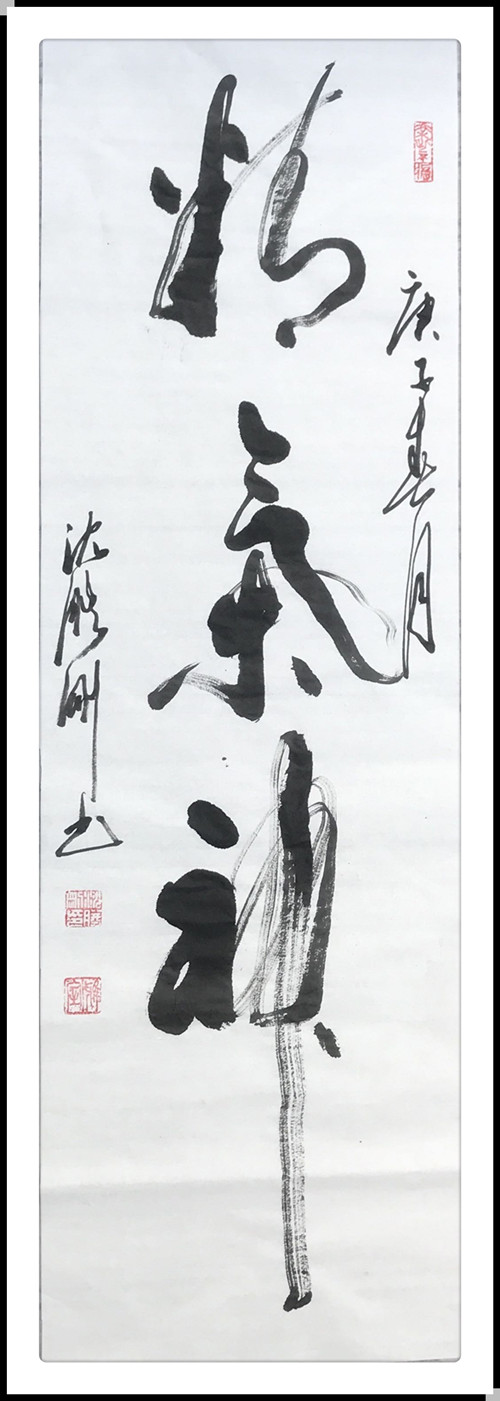 庚子春月
精氣神
沈勝刚书